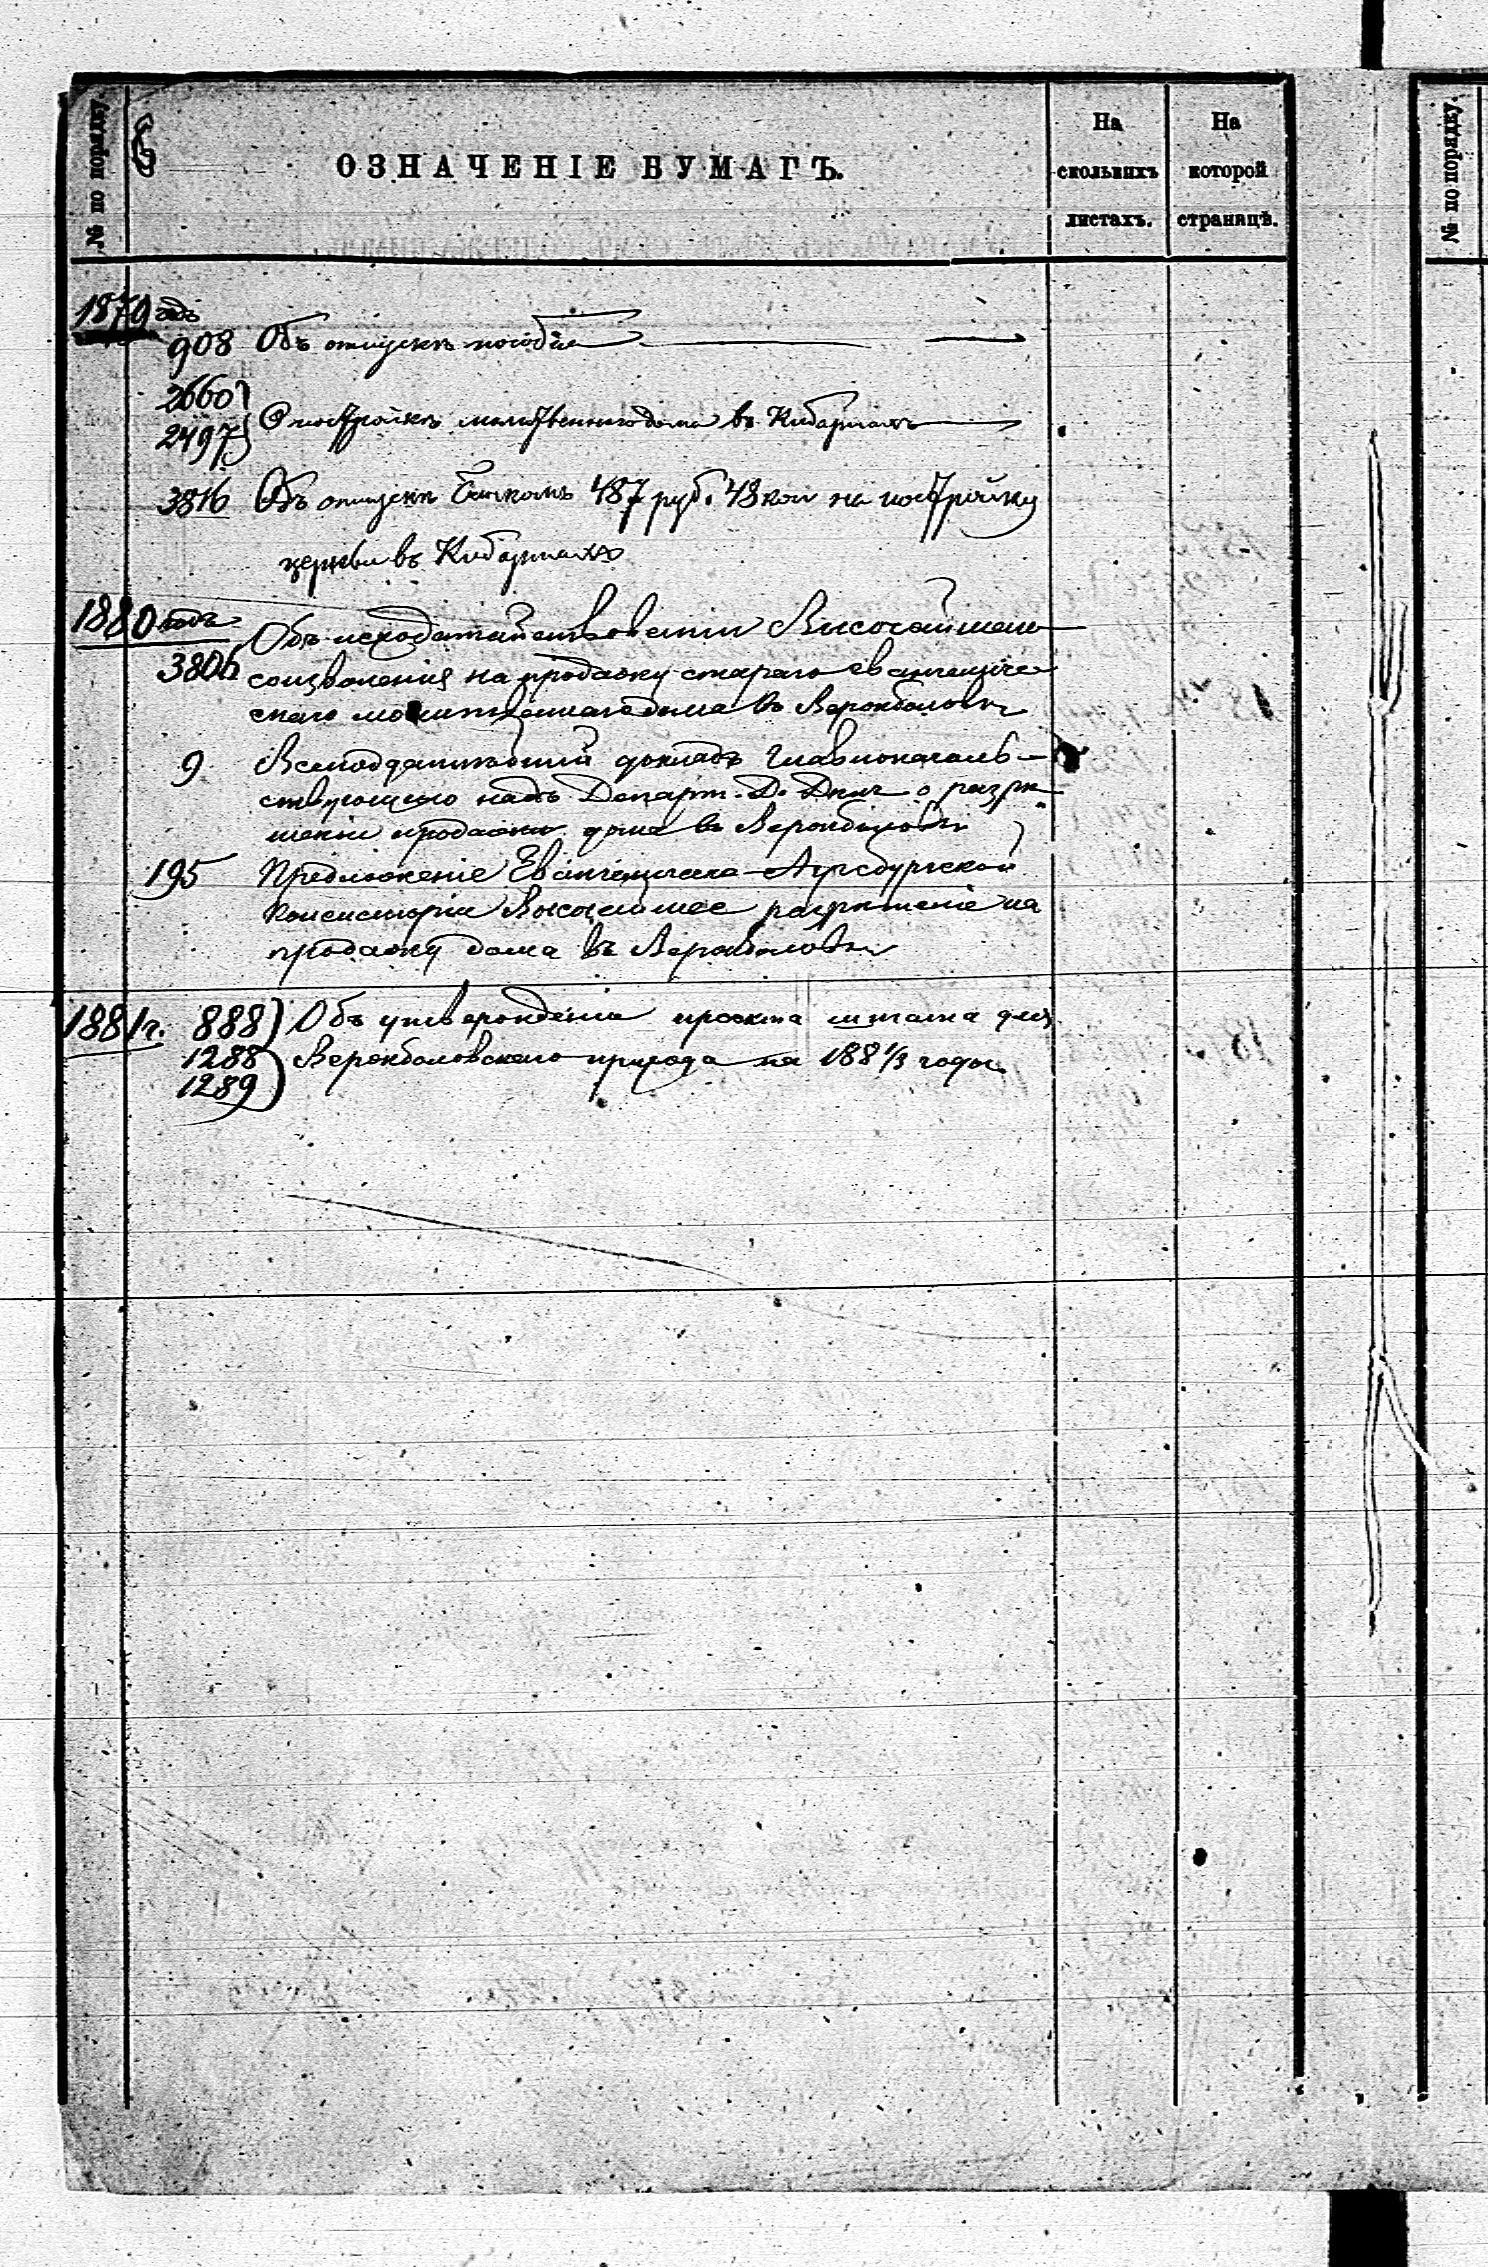 № по порядку.
ОЗНАЧЕНІЕ БУМАГЪ.
На сколькихъ листахъ.
На которой страницѣ.
№ по порядку.
1879 годъ
908 Объ отпускѣ пособія
2660
2497 О постройкѣ молитвеннаго дома въ Кибартахъ
3816 Объ отпускѣ Банкомъ 487 руб. 43 коп на постройку
церкви въ Кибартахъ
1880 годъ
Объ исходатайствованіи Высочайшаго
3806 соизволенія на продажу стараго евангеличе
скаго молитвеннаго дома въ Вержболовѣ
9 Всеподданнѣйшій докладъ Главноначаль-
ствующаго надъ Департ. Д. Дѣлъ о разрѣ
шеніи продажи дома въ Вержболовѣ
195 Предложеніе Евангелическо-Аугсбургской
Консисторіи Высочайшее разрѣшеніе на
продажу дома въ Вержболовѣ
1881 г. 888 Объ утвержденіи проэкта штата для
1288 Вержболовскаго прихода на 1881/3 годы.
1289